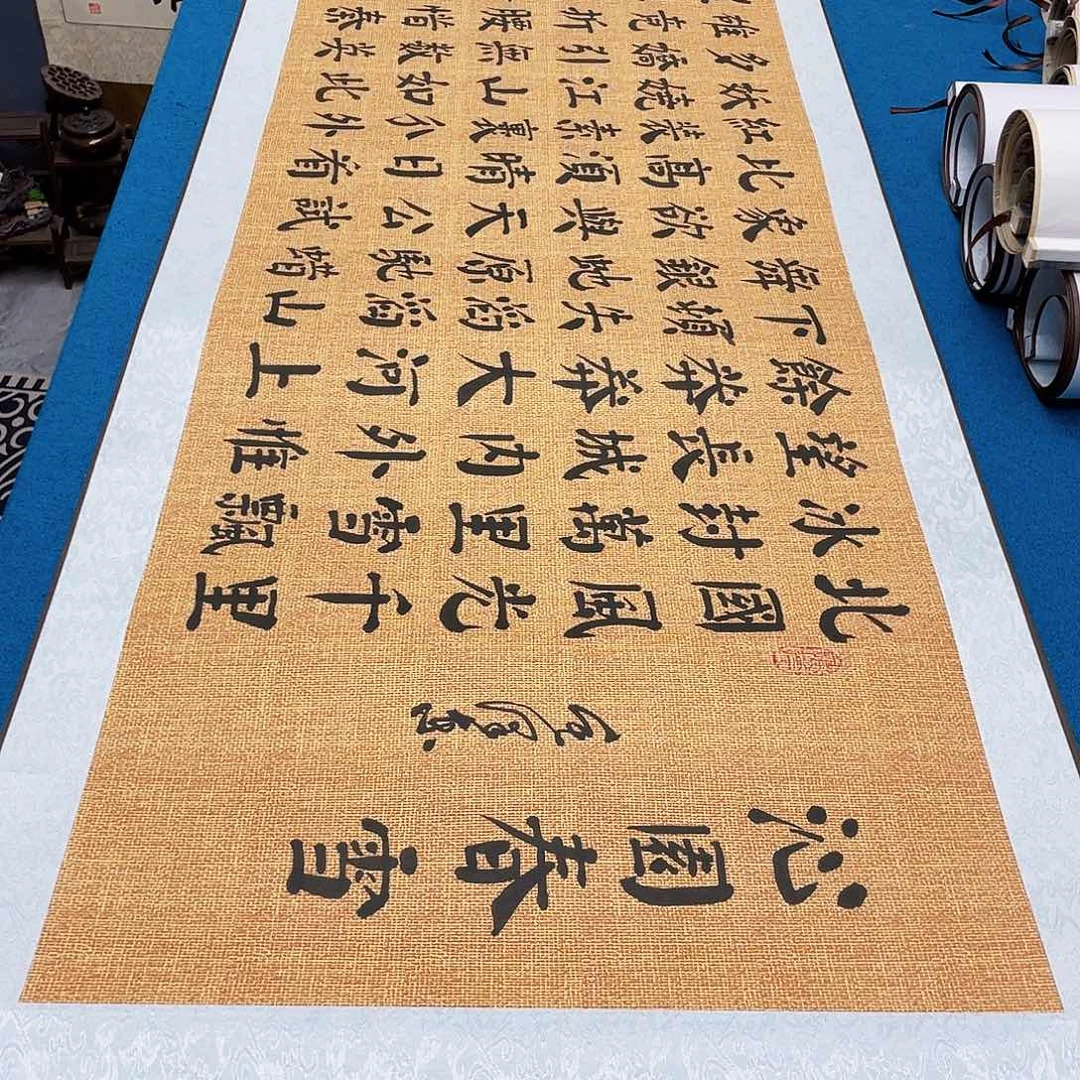 沁園春雪
北國風光千里
冰封萬里雪飄
望長城内外惟
餘莽莽大河上
下頓失滔滔山
舞銀虵原馳蜡
象欲與天公試
比高須晴日看
紅裝素裹分外
妖嬈江山如此
多嬌引無數英
雄竞折腰惜秦